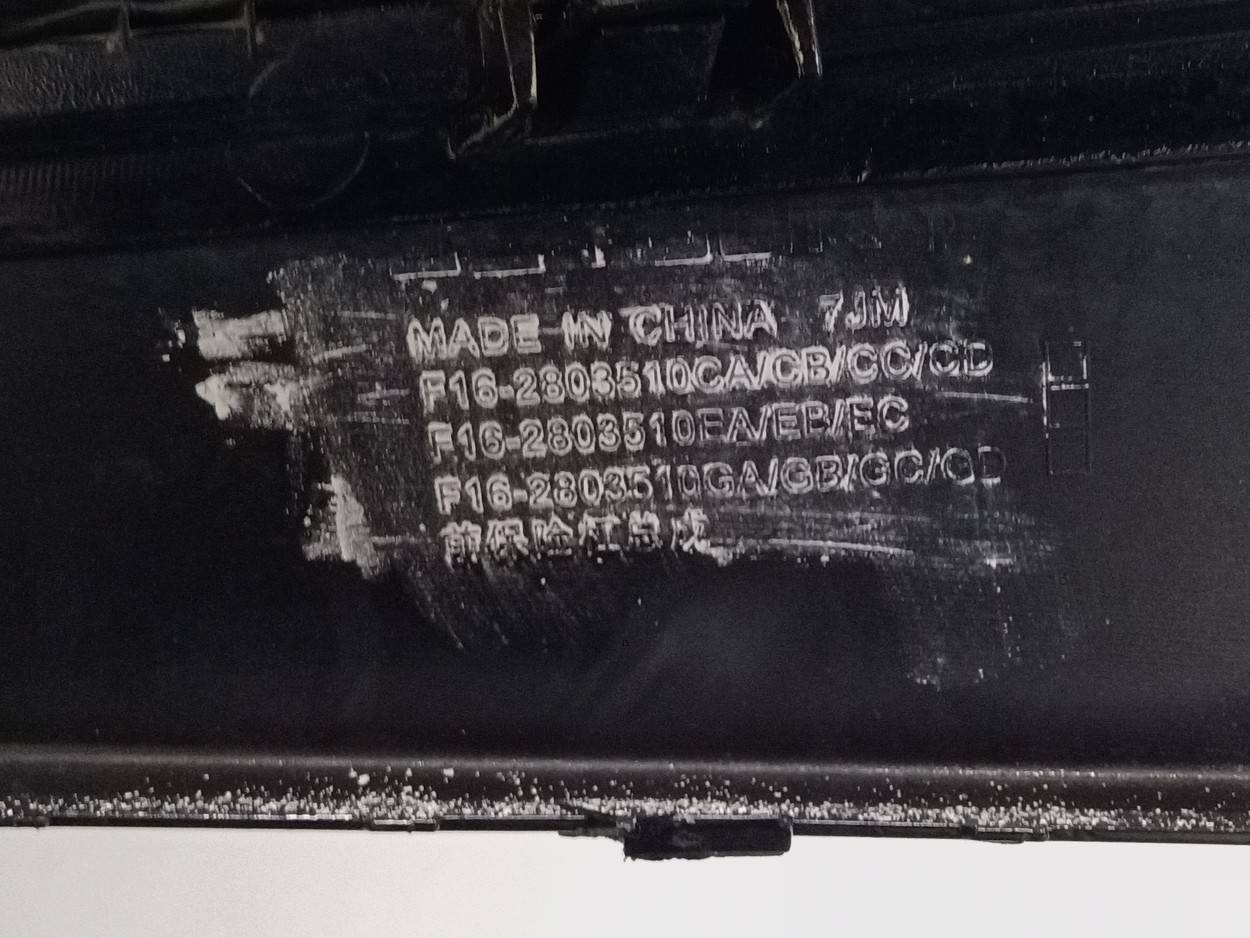 MADE IN CHINA 7JM
F16-2803510CA/CB/CC/CD
F16-2803510EA/EB/EC
F16-2803510GA/GB/GC/GD
前保险杠总成